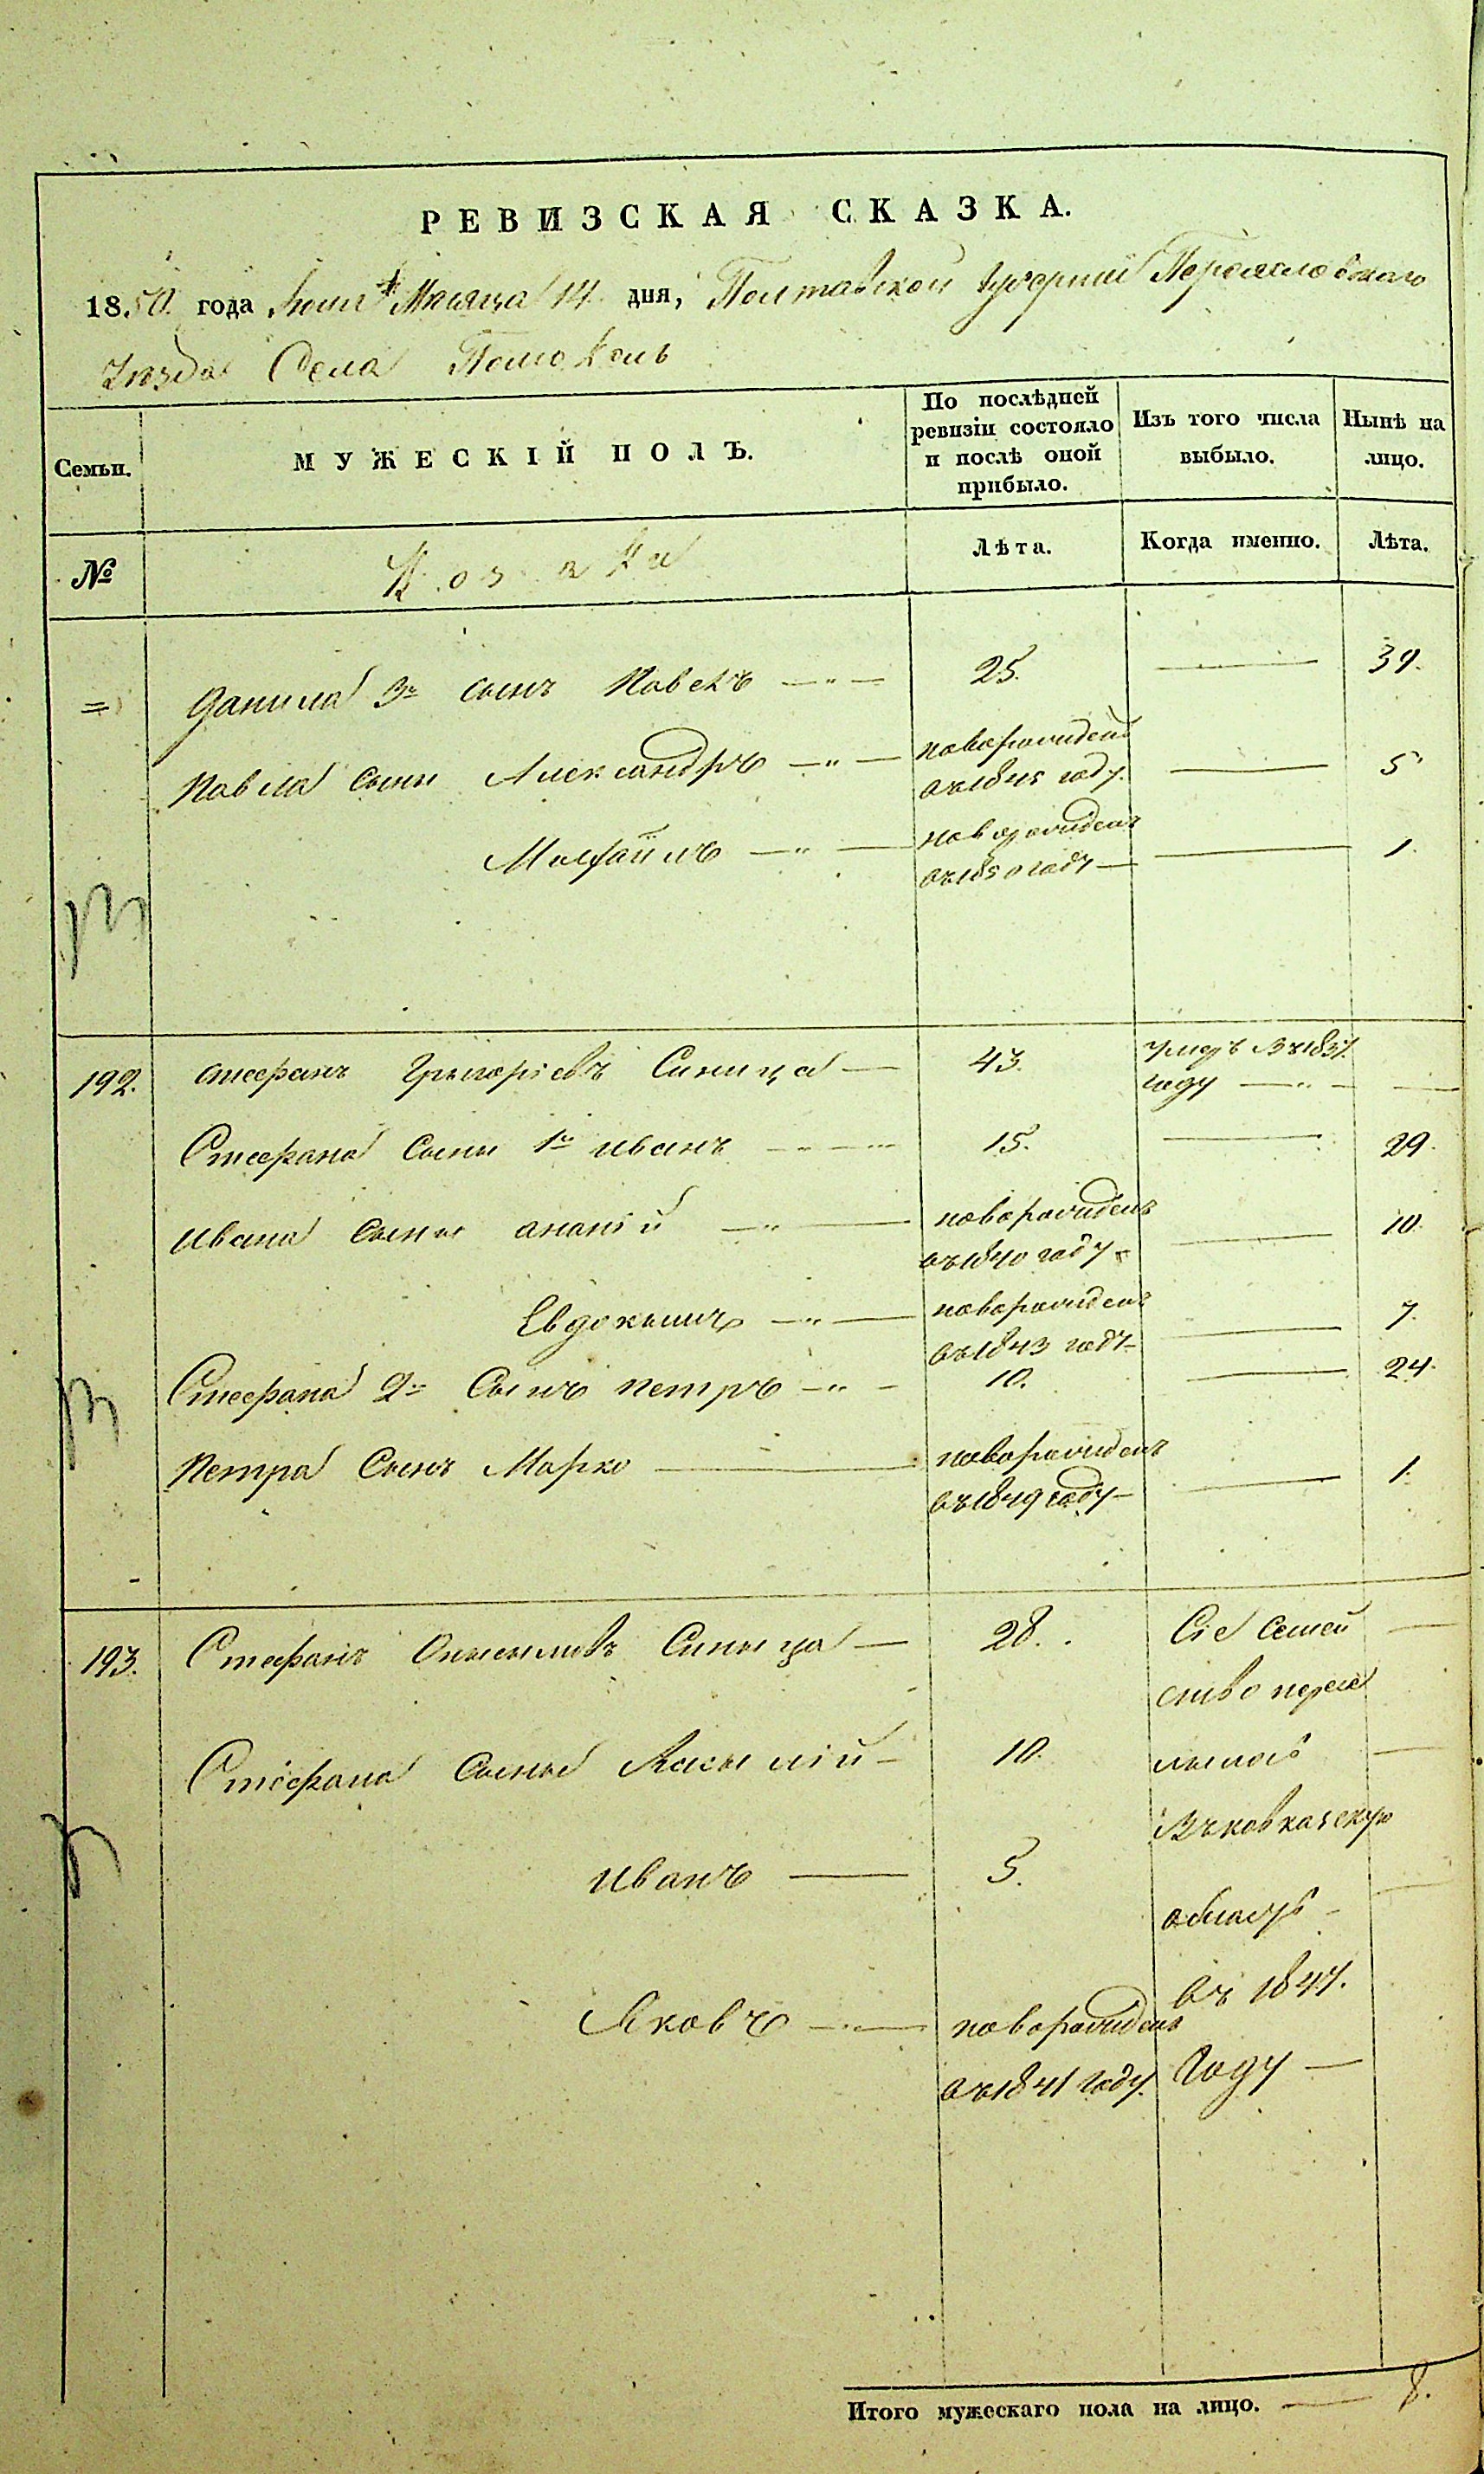 РЕВИЗСКАЯ СКАЗКА.
1850. года Июня Месяца 14. дня, Полтавской губернии Переяславского
Уезда Села Помокель
Семьи.
МУЖЕСКІЙ ПОЛЪ.
По послѣдней ревизіи состояло и послѣ оной прибыло.
Изъ того числа выбыло.
Нынѣ на лицо.
№
Козаки
Лѣта.
Когда именно.
Лѣта.
= Данила 3й сынъ Павелъ 25. 39.
Павла сыны Александръ новорожденъ 5
въ 1845 году.
Михаилъ новорожденъ 1.
въ 1850 году
192. Стефанъ Григоріевъ Синица 43. умеръ въ 1837.
году
Стефана сыны 1й Иванъ 15. 29.
Ивана сыны Ананій новорожденъ 10.
въ 1840 году
Евдокимъ новорожденъ 7.
въ 1843 году
Стефана 2й Сынъ Петръ 10. 24.
Петра Сынъ Марко новорожденъ 1.
въ 1849 году
193. Стефанъ Синица 28. Сіе семей
ство пересе
Стефана Сыны Василій 10. лилось
Въ Кавказскую
Иванъ 5.
область
въ 1847.
Яковъ новорожденъ
въ 1841 году. Году
Итого мужескаго пола на лицо. 8.